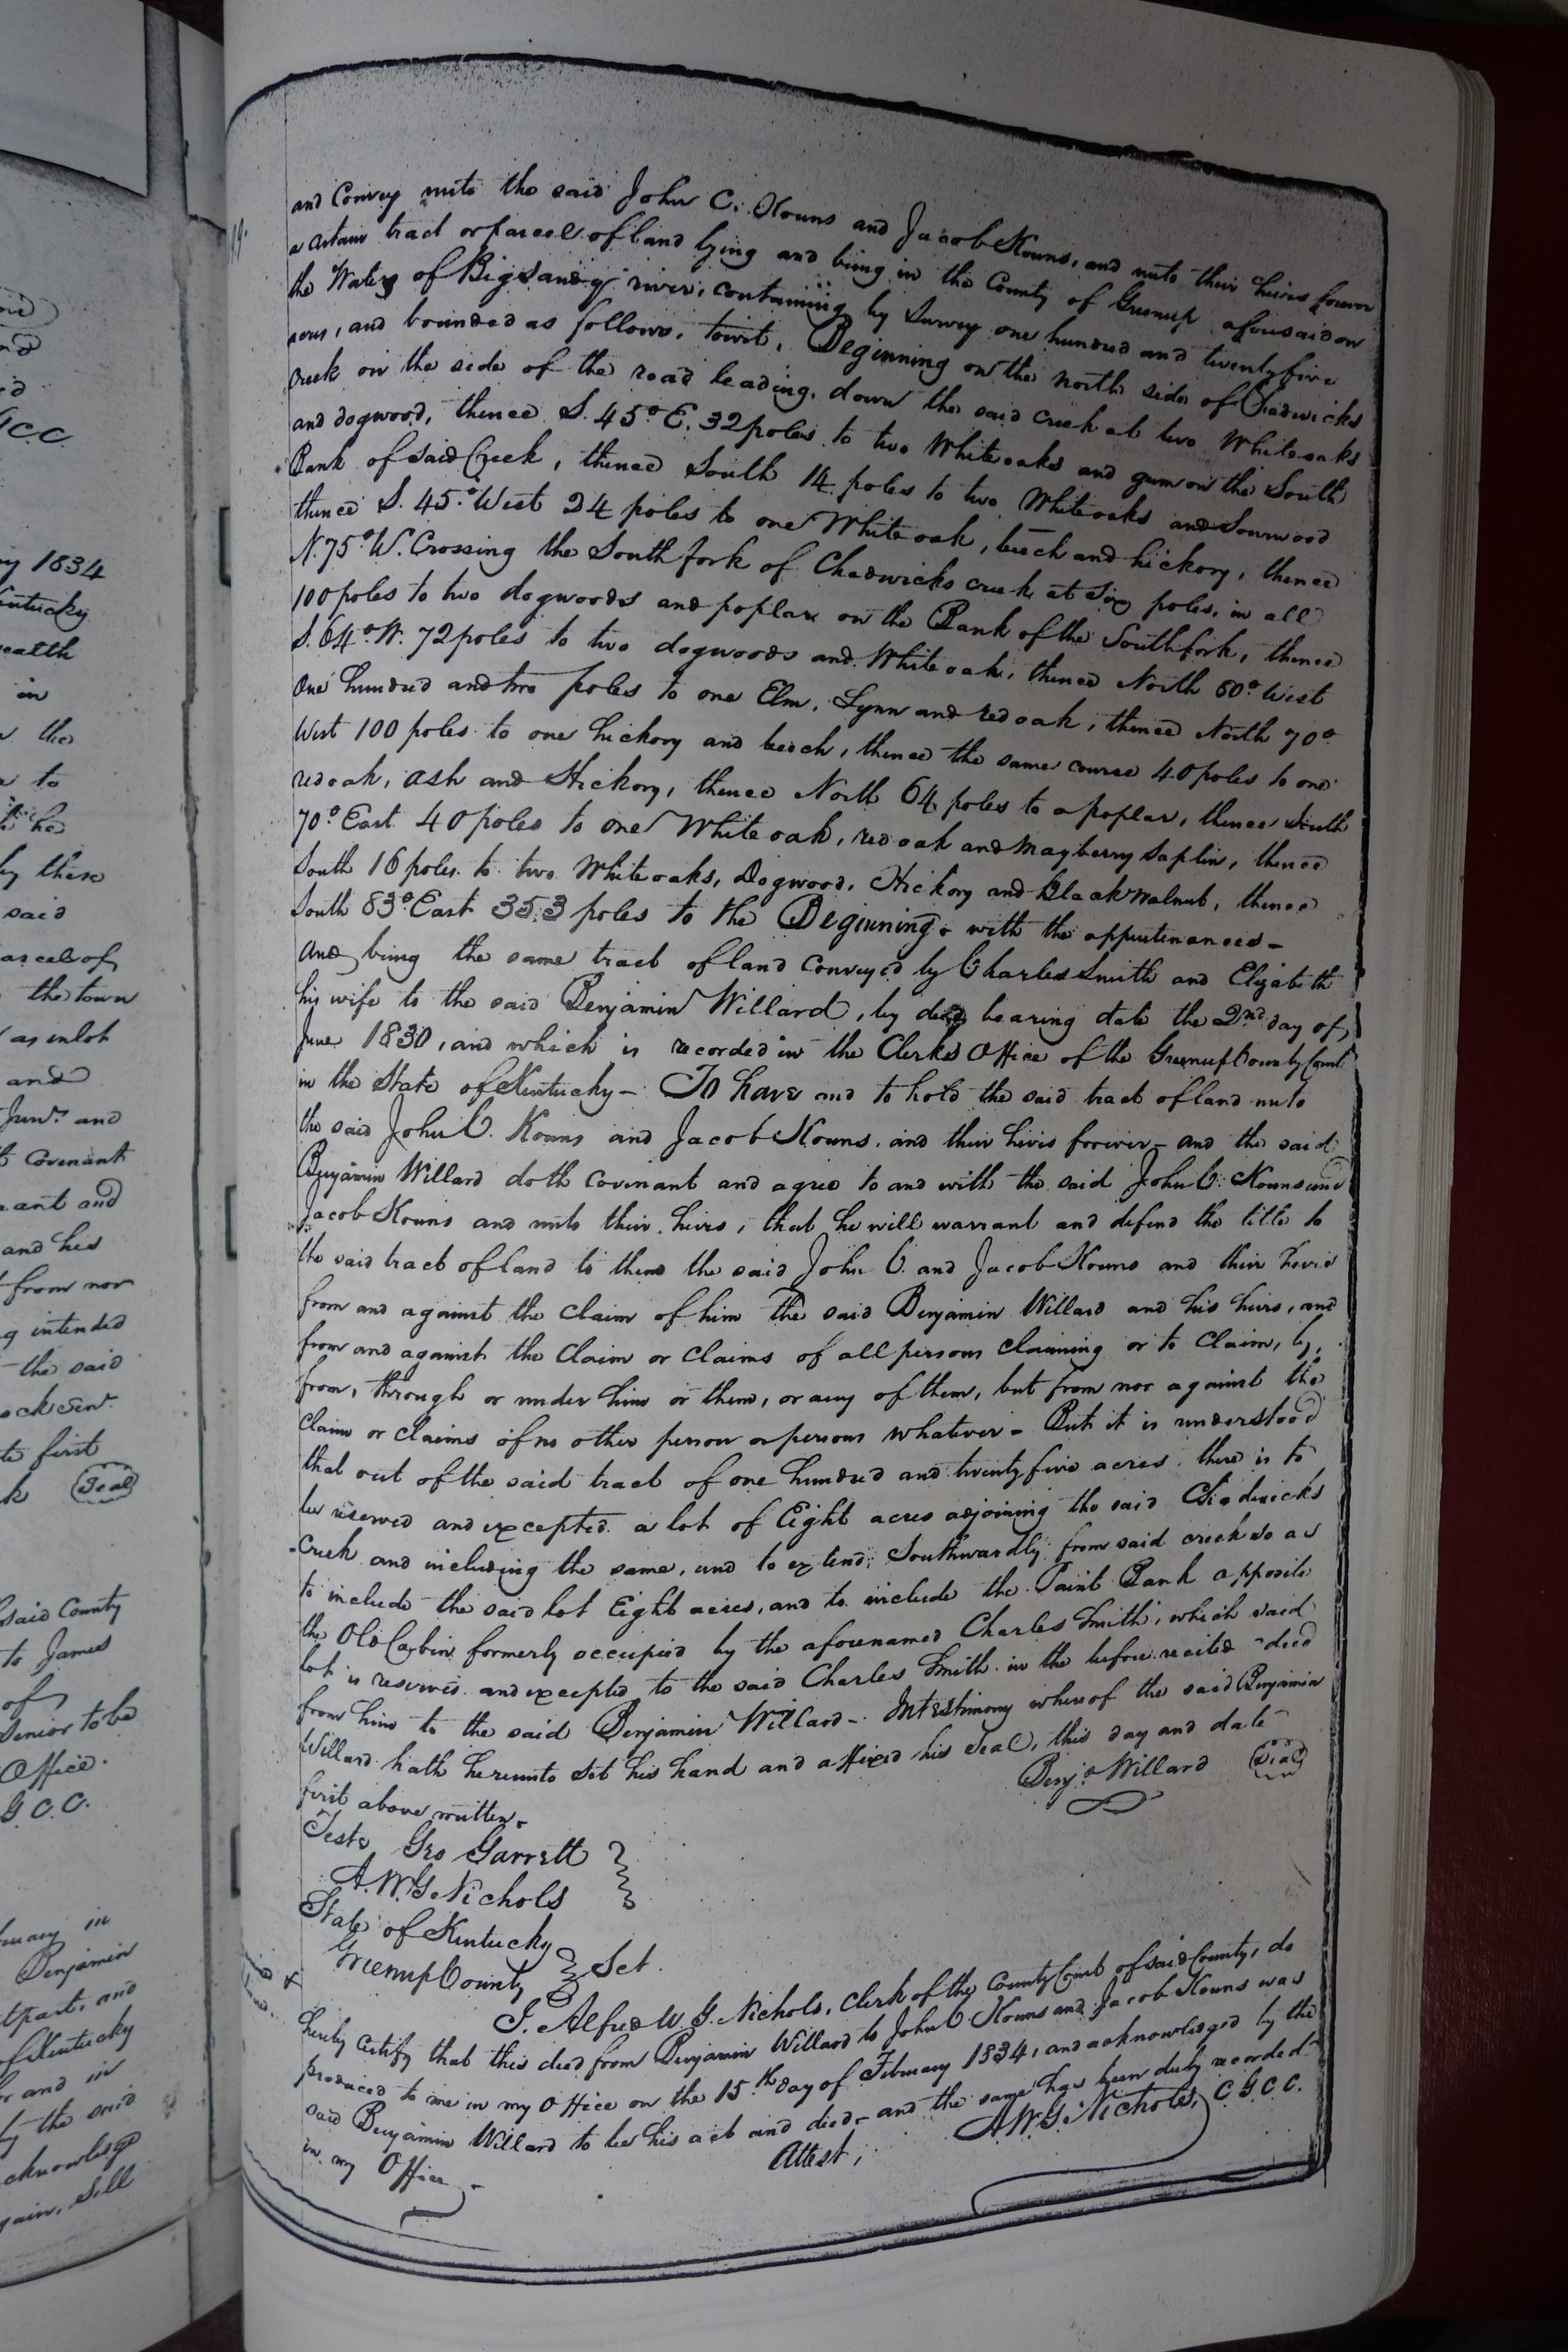 and Convey unto the said John C. Kouns and Jacob Kouns, and unto their heirs forever
a certain tract or parcel of land lying and being in the County of Greenup aforesaid on
the Waters of Big Sandy river, containing by Survey one hundred and twenty five
acres, and bounded as follows, towit, Beginning on the north side of Chadwicks
Creek on the side of the road leading down the said creek at two Whiteoaks
and dogwood, thence S. 45° E. 32 poles to two White oaks and gum on the South
Bank of said Creek, thence South 14 poles to two Whiteoaks and Sourwood
thence S. 45° West 24 poles to one White oak, beech and hickory, thence
N. 75° W. Crossing the South fork of Chadwicks creek at six poles, in all
100 poles to two dogwoods and poplar on the Bank of the South fork, thence
S. 64° W. 72 poles to two dogwoods and White oak, thence North 60° West
One hundred and two poles to one Elm, Lynn and red oak, thence North 70°
West 100 poles to one hickory and beech, thence the same course 40 poles to one
red oak, ash and Hickory, thence North 64 poles to a poplar, thence South
70° East 40 poles to one White oak, red oak and mayberry saplin, thence
South 16 poles to two Whiteoaks, Dogwood, Hickory and black walnut, thence
South 83° East 353 poles to the Beginning with the appurtenances –
And being the same tract of land conveyed by Charles Smith and Elizabeth
his wife to the said Benjamin Willard, by deed bearing date the 2nd day of
June 1830, and which is recorded in the Clerks Office of the Greenup County Court
in the State of Kentucky – To have and to hold the said tract of land unto
the said John C. Kouns and Jacob Kouns, and their heirs forever – and the said
Benjamin Willard doth covenant and agree to and with the said John C. Kouns and
Jacob Kouns and unto their heirs, that he will warrant and defend the title to
the said tract of land to them the said John C. and Jacob Kouns and their heirs
from and against the claim of him the said Benjamin Willard and his heirs, and
from and against the claim or claims of all persons claiming or to claim, by,
from, through or under him or them, or any of them, but from nor against the
claim or claims of no other person or persons whatever – But it is understood
that out of the said tract of one hundred and twenty five acres there is to
be reserved and excepted a lot of Eight acres adjoining the said Chadwicks
Creek and including the same, and to extend Southwardly from said creek so as
to include the said lot Eight acres, and to include the Paint Bank opposite
the Old Cabin formerly occupied by the aforenamed Charles Smith, which said
lot is reserved and excepted to the said Charles Smith in the before recited deed
from him to the said Benjamin Willard – In testimony whereof the said Benjamin
Willard hath hereunto set his hand and affixed his Seal, this day and date
first above written.
Benjn Willard (Seal)
Teste Geo Garrett
A. W. G. Nichols
State of Kentucky
Greenup County Sct.
I. Alfred W. G. Nichols, Clerk of the County Court of said County, do
hereby certify that this deed from Benjamin Willard to John C. Kouns and Jacob Kouns was
produced to me in my Office on the 15th day of February 1834, and acknowledged by the
said Benjamin Willard to be his act and deed – and the same has been duly recorded
in my Office.
Attest, A. W. G. Nichols, C.G.C.C.